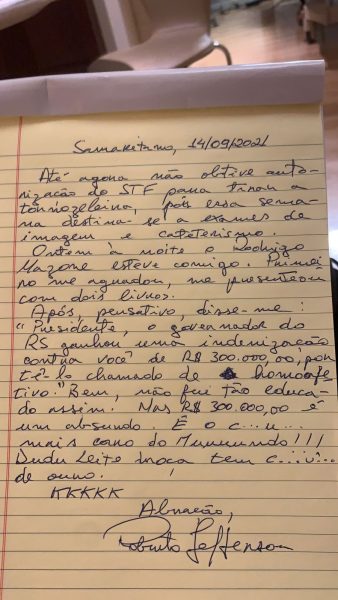 Samaritano, 14/09/2021
Até agora não obtive auto-
rização do STF para tirar a
tornozeleira, pois essa sema-
na destina-se a exames de
imagem e cateterismo.
Ontem à noite o Rodrigo
Mazone esteve comigo. Primei-
ro me agradou, me presenteou
com dois livros.
Após, pensativo, disse-me:
"Presidente, o governador do
RS ganhou uma indenização
contra você de R$ 300.000,00, por
tê-lo chamado de homoafe-
tivo." Bem, não fui tão educa-
do assim. Mas R$ 300.000,00 é
um absurdo. É o c...u...
mais caro do Muuuundo!!!
Dudu Leite moca tem c...u...
de ouro.
KKKKK
Abração,
Roberto Jefferson